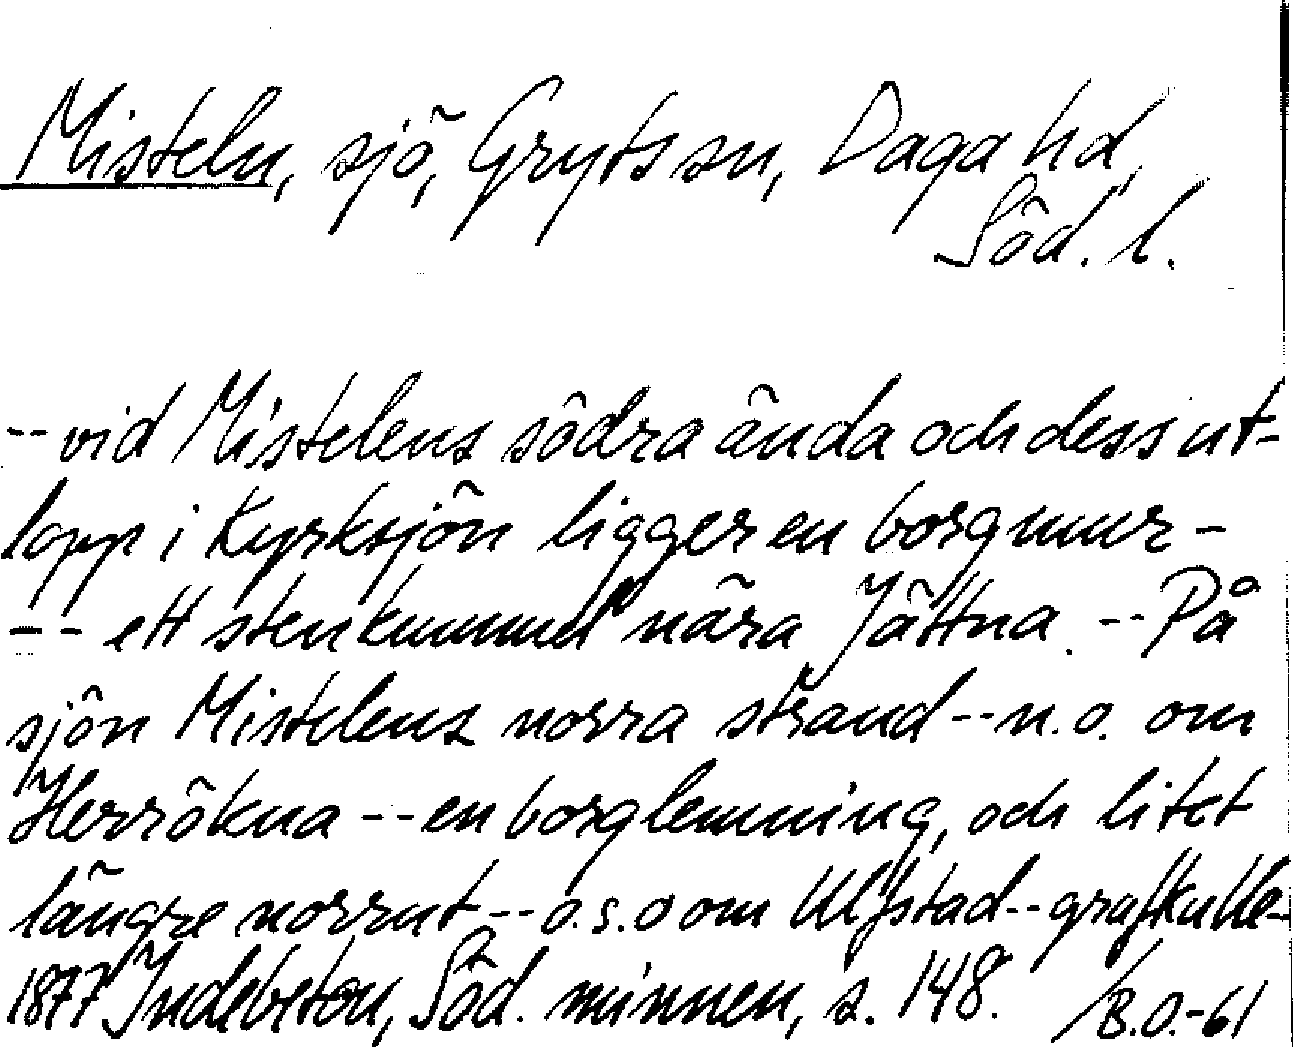 Misteln, sjö, Gryts sn, Daga hd,
Söd. l.
-- vid Mistelens södra ända och dess ut-
lopp i Kyrksjön ligger en borgmur -
-- ett stenkummel nära Jättna. -- På
sjön Mistelens norra strand -- n.o. om
Herrökna -- en borglemning, och litet
längre norrut -- o.s.o om Ulfstad -- grafkulle -
1877 Indebetou, Söd. minnen, s. 148. /B.O.-61